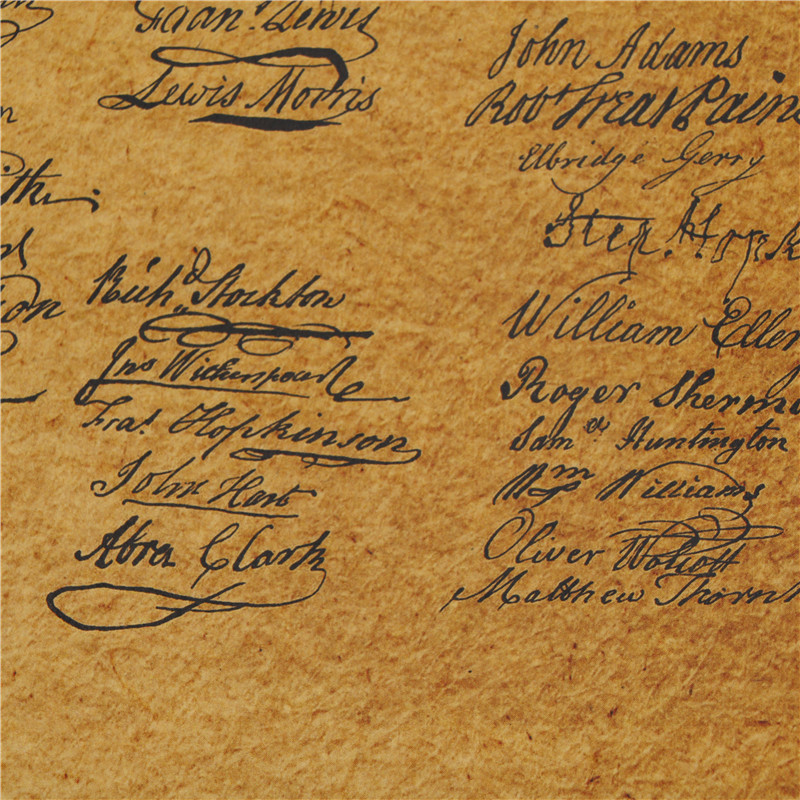 Lewis
Lewis Morris
Rich'd Stockton
Jno Witherspoon
Fras. Hopkinson
John Hart
Abra Clark
John Adams
Robt Treat Paine
Elbridge Gerry
Step. Hopk
William Eller
Roger Sherma
Sam el Huntington
Wm Williams
Oliver Wolcott
Matthew Thornt